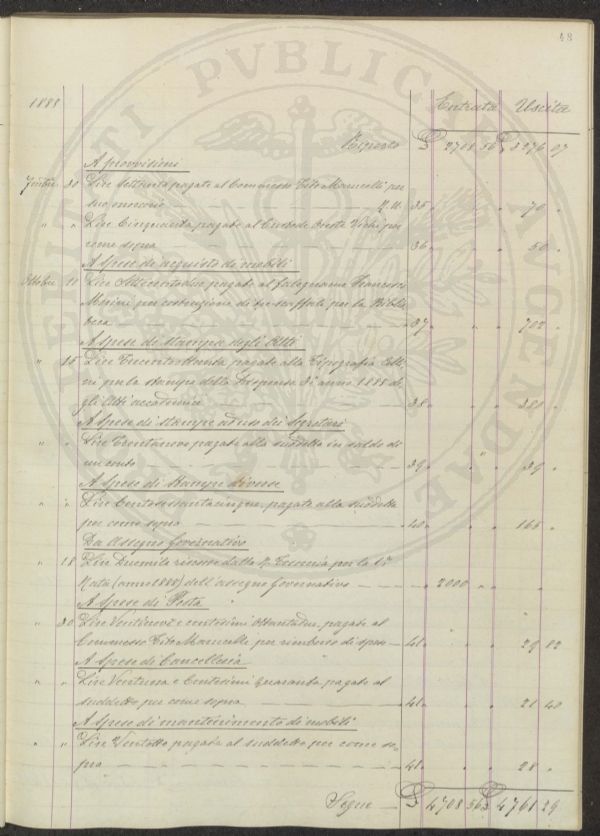 43
1888 Entrata Uscita
Riporto £ 2708 56 £ 3276 07
A provvisioni
30 Lire Settanta pagate al Commesso Tito Marucelli per
suo onorario N. 35 " " 70 "
" " Lire Cinquanta pagate al Custode Oreste per
come sopra 36 " " 50 "
A Spese di acquisto di mobili
Ottobre 11 Lire pagate al falegname Francesco
per costruzione di tre scaffali per la Biblio
teca 37 " " 702 "
A Spese di stampa degli Atti
" 15 Lire pagate alla Tipografia
ni per la stampa della Dispensa 3a anno 1888 de
gli Atti accademici 38 " "
A Spese di stampe ad uso dei Segretari
" " Lire Trentanove pagate alla suddetta in saldo di
un conto 39 " " 39 "
A Spese di Stampe diverse
" " Lire Centosessantacinque pagate alla suddetta
per come sopra 40 " " 165 "
Da Assegno Governativo
" 18 Lire Duemila riscosse dalla R. Tesoreria per la
Rata (anno 1888) dell'assegno Governativo " 2000 " "
A Spese di Posta
" 30 Lire Ventinove e centesimi Ottantadue pagate al
Commesso Tito Marucelli per rimborso di spese 41 " " 29 82
A Spese di Cancelleria
" " Lire Ventuna e Centesimi Quaranta pagate al
suddetto per come sopra 41 " " 21 40
A Spese di mantenimento di mobili
" " Lire Ventotto pagate al suddetto per come so
pra 41 " " 28 "
Segue £ 4708 56 £ 4761 29
PUBLICAE
AUGENDAE